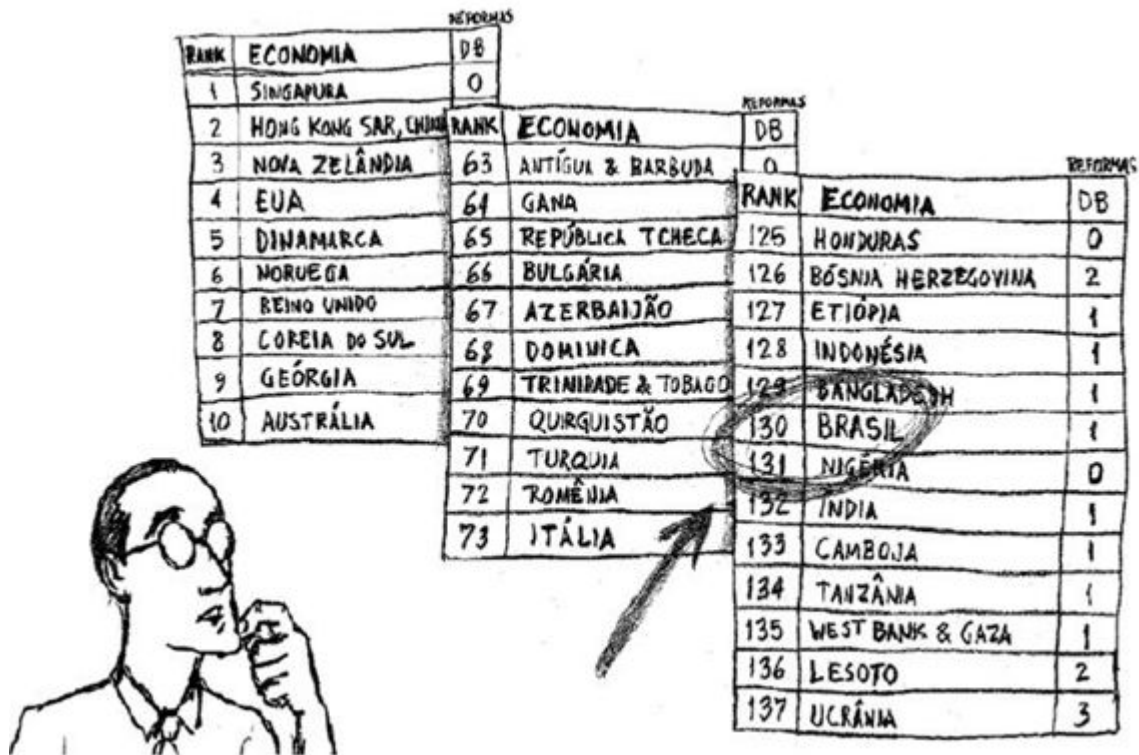 REFORMAS
RANK ECONOMIA DB
1 SINGAPURA 0
2 HONG KONG SAR, CHINA
3 NOVA ZELÂNDIA
4 EUA
5 DINAMARCA
6 NORUEGA
7 REINO UNIDO
8 COREIA DO SUL
9 GEÓRGIA
10 AUSTRÁLIA
REFORMAS
RANK ECONOMIA DB
63 ANTÍGUA & BARBUDA 0
64 GANA
65 REPÚBLICA TCHECA
66 BULGÁRIA
67 AZERBAIJÃO
68 DOMINICA
69 TRINIDADE & TOBAGO
70 QUIRGUISTÃO
71 TURQUIA
72 ROMÊNIA
73 ITÁLIA
REFORMAS
RANK ECONOMIA DB
125 HONDURAS 0
126 BÓSNIA HERZEGOVINA 2
127 ETIÓPIA 1
128 INDONÉSIA 1
129 BANGLADESH 1
130 BRASIL 1
131 NIGÉRIA 0
132 ÍNDIA 1
133 CAMBOJA 1
134 TANZÂNIA 1
135 WEST BANK & GAZA 1
136 LESOTO 2
137 UCRÂNIA 3